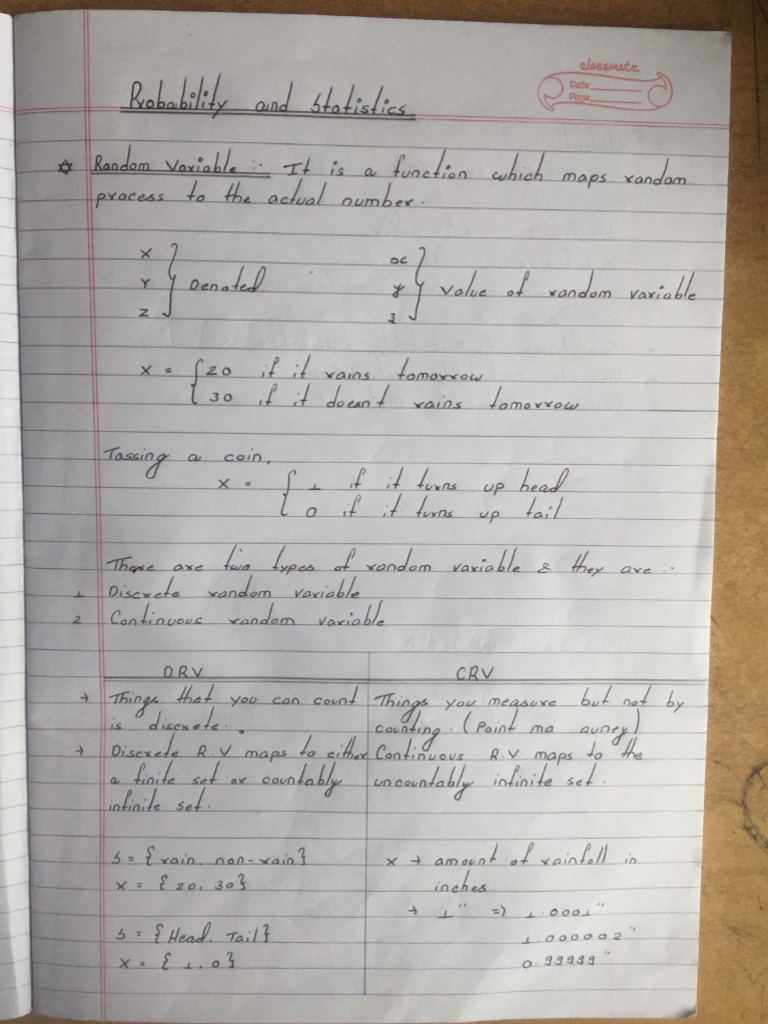 classmate
Date
Page
Probability and Statistics
☆ Random Variable :- It is a function which maps random
process to the actual number.
X
Y } Denoted
Z
x
y } value of random variable
z
X = { 20 if it rains tomorrow
30 if it doesn't rains tomorrow
Tossing a coin,
X = { 1 if it turns up head
0 if it turns up tail
There are two types of random variable & they are :-
1 Discrete random variable
2 Continuous random variable
DRV
→ Things that you can count
is discrete.
→ Discrete R.V maps to either
a finite set or countably
infinite set.
S = {rain, non-rain}
X = {20, 30}
S = {Head, Tail}
X = {1, 0}
CRV
Things you measure but not by
counting. (Point ma auney)
Continuous R.V maps to the
uncountably infinite set.
x → amount of rainfall in
inches
→ 1" => 1.0001"
1.000002"
0.99999"